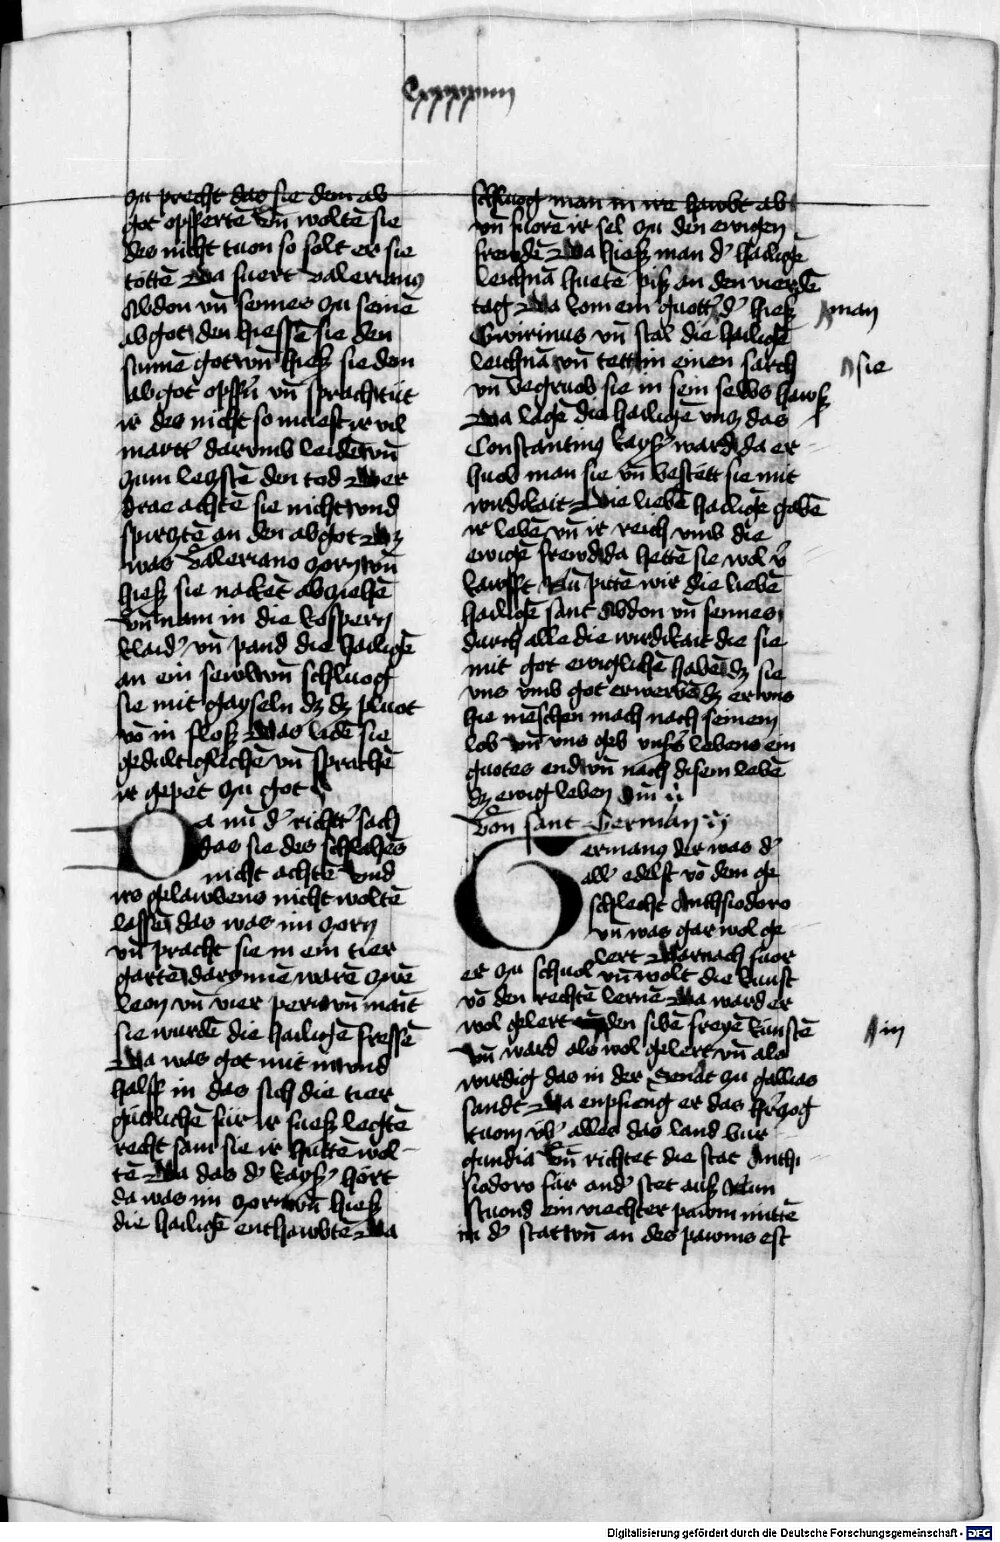 zu precht das sie dem ab
got opffertē vn̄ woltē sie
des nicht tuon so solt er sie
tottē Da fuert valerianus
Abdon vn̄ sennes zu seinē
abgot den hiessē sie den
sunnē got vn̄ hieß sie dem
abgot opffn̄ vn̄ sprach tüt
ir des nicht so muest ir vil
martt' darumb leidē vn̄
zum letzstē den tod Der
drae achtē sie nicht vnd
spirtztē an den abgot Dz
was valeriano zorn vn̄
hieß sie nacket abziehē
vn̄ nam in die kospern
klaid' vn̄ pand die hailigē
an ein sewl vn̄ schluog
sie mit gayseln dz dz pluot
vō in floß Das lidē sie
gedultiglichē vn̄ sprachē
ir gepet zu got
Da nū d' richt' sach
das sie des schlahēs
nicht achtē vnd
irs gelawbens nicht woltē
lassē das was im zorn
vn̄ pracht sie in ein tier
gartē darinnē warē zwē
leon vn̄ vier pern vn̄ maīt
sie wurdē die hailigē fressē
Da was got mit in vnd
halff in das sich die tier
gütlichē für ir fueß legtē
recht sam sie ir hüttē wol
tē Da das d' kayß' hört
da was im zorn vn̄ hieß
die hailigē enthawbtē Da
schluog man in ire hawbt ab
vn̄ fuorē ir sel zu den ewigen
frewdē Da hieß man d' hailigē
leichnā huetē piß an den vierdē
tag Da kom ein guott' d' hieß
man
Qwirinus vn̄ stal die hailigē
leichnā vn̄ tett in einen sarch
sie
vn̄ begruob sie in sein selbs hawß
Da lagē die hailigē vntz das
Constantinus kayß' ward da er
huob man sie vn̄ bestett sie mit
wirdikait Die liebē hailigē gabē
ir lebē vn̄ ir reich vmb die
ewigē frewd da hettē sie wol v'
kawfft Nū pittē wir die liebē
hailigē sant Abdon vn̄ sennes
durch alle die wirdikait die sie
mit got ewiglichē habē dz sie
vns vmb got erwerbē dz er vns
hie mēschen mach nach seinem
lob vn̄ vns geb vnsers lebens ein
guotes end vn̄ nach disem lebē
dz ewig leben Am̄
Von sant German
Germanus der was d'
all' edelst vō dem ge
schlecht Anthsiodoro
vn̄ was gar wol ge
lert Darnach fuor
er zu schuol vn̄ wolt die kunst
vō den rechtē lernē Da ward er
wol gelert den sibē freyē künstē
in
vn̄ ward also wol gelert vn̄ als
wirdig das in der Senat zu gallias
sandt Da enpfieng er das h'tzog
tuom vb' alles das land bur
gundia vn̄ richtet die stat Anthi
siodoro für and' stet auß Nun
stuond ein viechter pawm mittē
in d' stat vn̄ an des pawms est